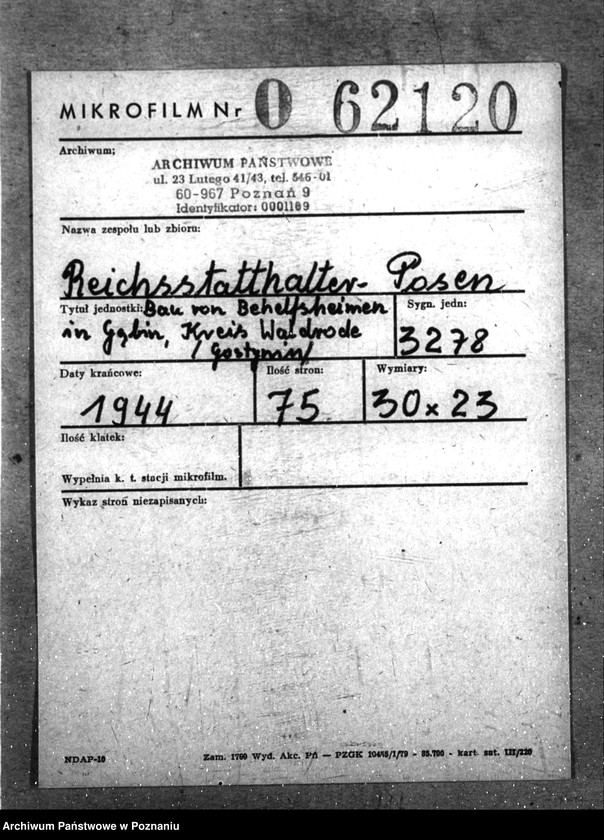 MIKROFILM Nr 0 62120
Archiwum;
ARCHIWUM PAŃSTWOWE
ul. 23 Lutego 41/43, tel. 546-01
60-967 Poznań 9
Identyfikator: 0001189
Nazwa zespołu lub zbioru:
Reichsstatthalter - Posen
Tytuł jednostki: Bau von Behelfsheimen
in Gąbin, Kreis Waldrode
/Gostynin/
Sygn. jedn:
3278
Daty krańcowe:
1944
Ilość stron:
75
Wymiary:
30 x 23
Ilość klatek:
Wypełnia k. t. stacji mikrofilm.
Wykaz stron niezapisanych:
NDAP-10 Zam. 1760 Wyd. Akc. Pń — PZGK 1/79 - kart. sat.
Archiwum Państwowe w Poznaniu